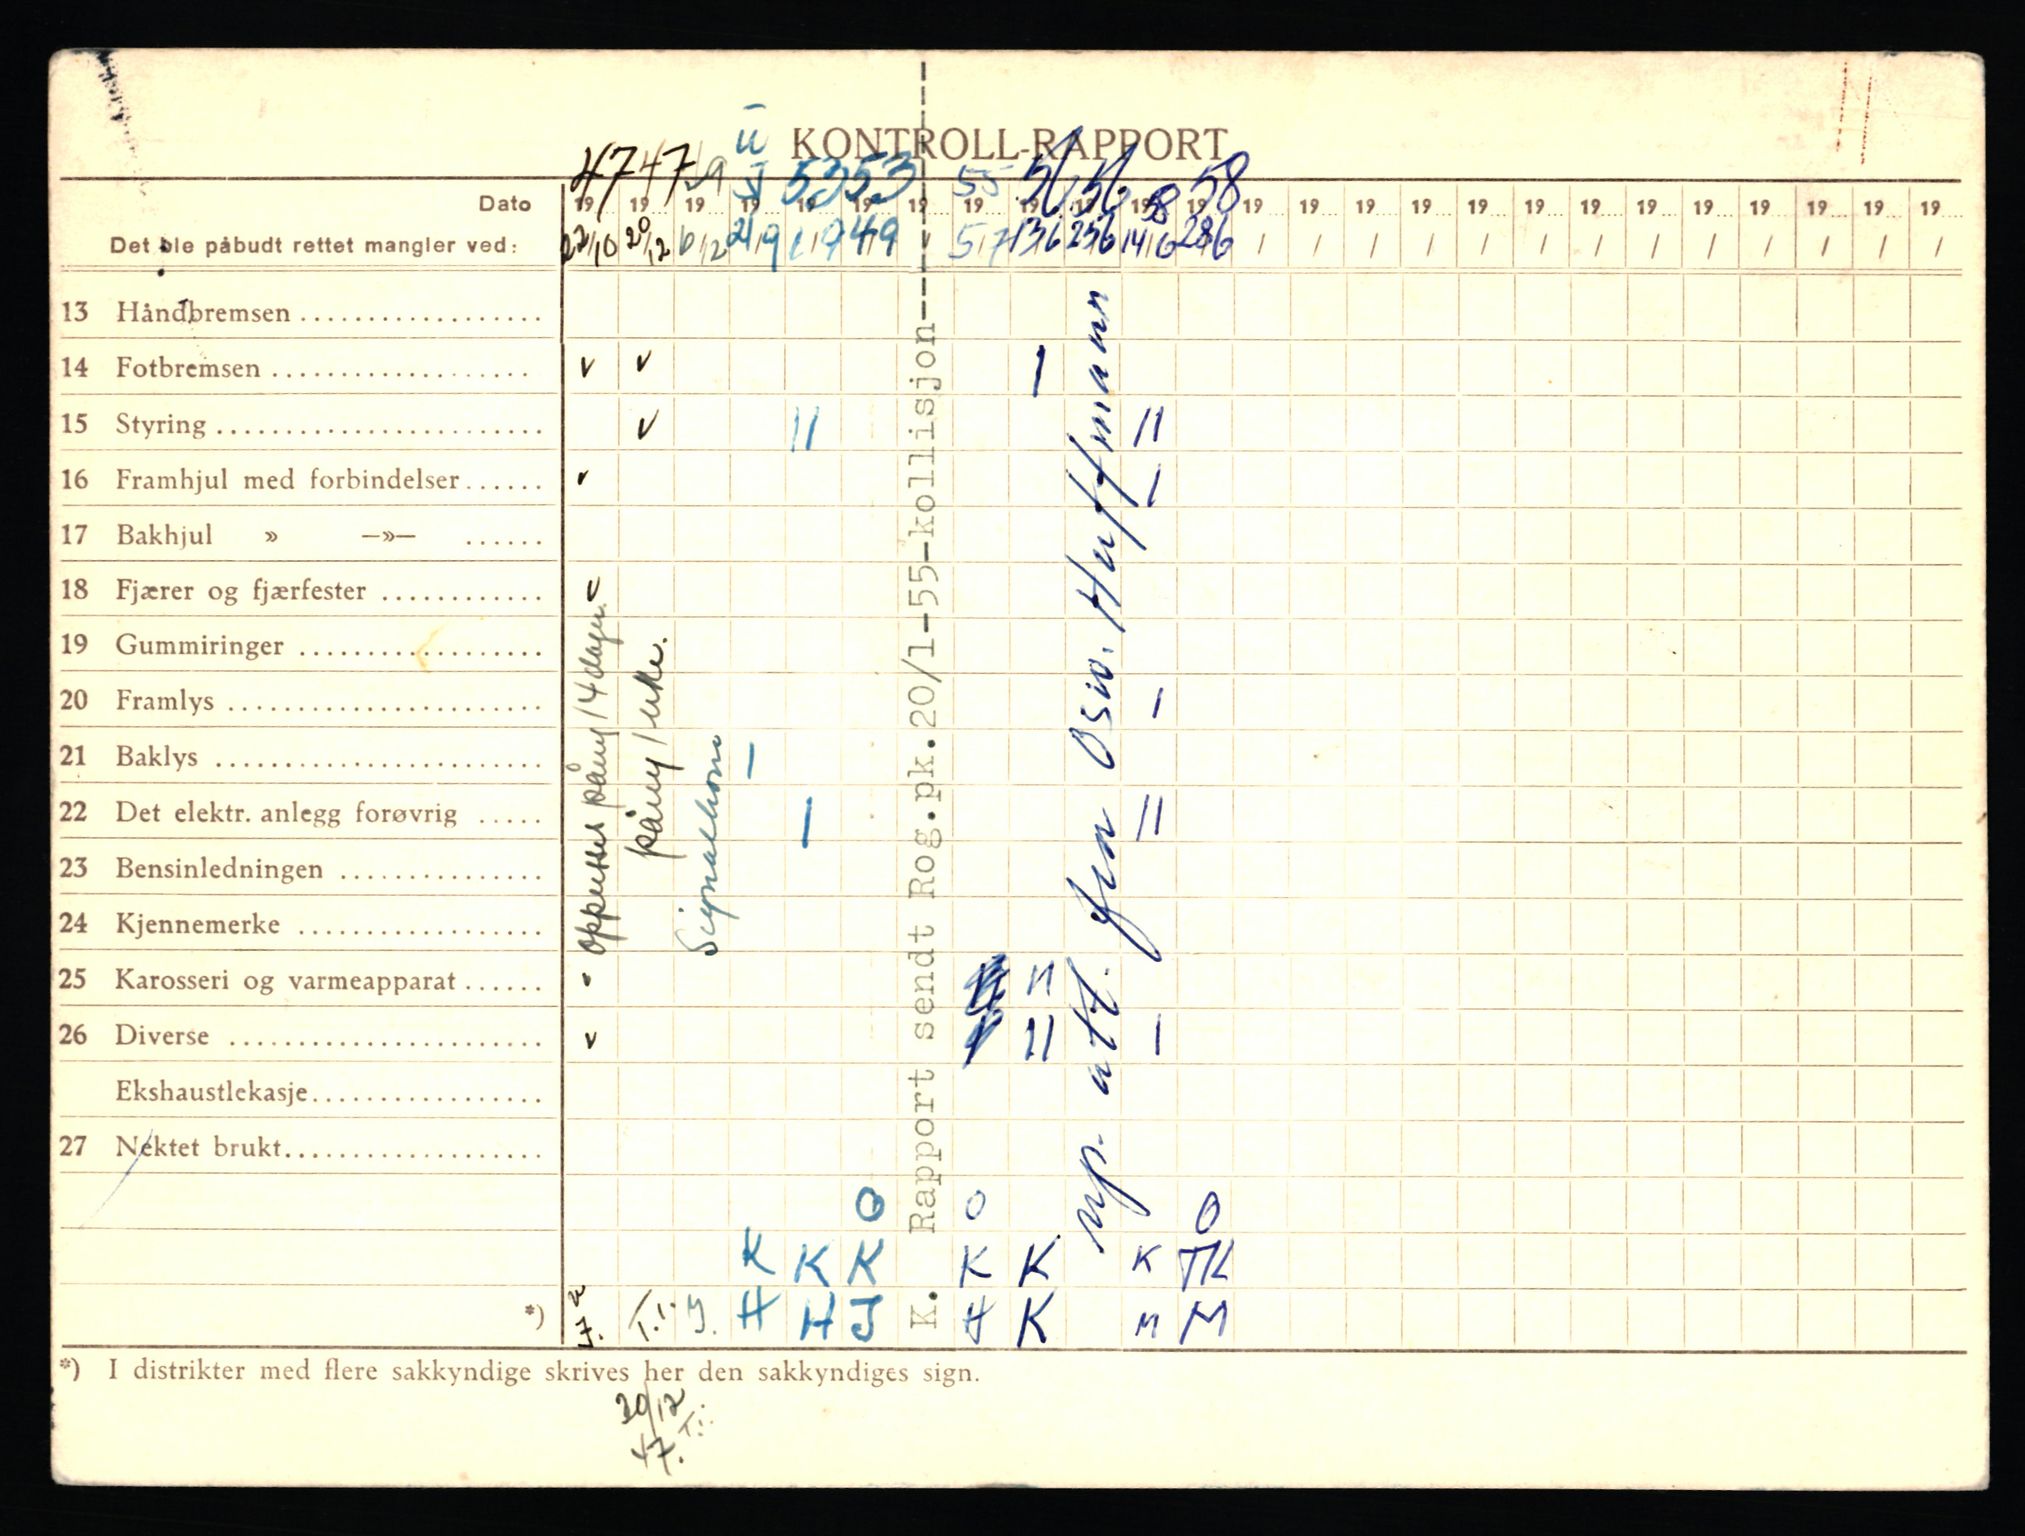 KONTROLL-RAPPORT
47 47 49 53 53 55 56 56 58 58
Dato 19 19 19 19 19 19 19 19 19 19 19 19 19 19 19 19 19 19 19 19 19 19 19 19 19
Det ble påbudt rettet mangler ved: 22/10 20/12 6/12 21/9 1/9 4/9 / 5/7 13/6 25/6 14/6 28/6 / / / / / / / / / / / / /
13 Håndbremsen ..................
14 Fotbremsen ................... v v I
15 Styring ........................ v II II
16 Framhjul med forbindelser ...... v I
17 Bakhjul » —»— ......
18 Fjærer og fjærfester ............ v
19 Gummiringer ..................
20 Framlys ....................... I
21 Baklys ........................ I
22 Det elektr. anlegg forøvrig ..... I II
23 Bensinledningen ...............
24 Kjennemerke ..................
25 Karosseri og varmeapparat ...... II
26 Diverse ....................... v II I
Ekshaustlekasje .................
27 Nektet brukt ...................
O O O
K K K K K K TK
*) T.i. J. H H J H K M M
påny 1 uke.
Signalhorn
K. Rapport sendt Rog.pk.20/1-55-kollisjon----
att. fra Osw. Hoffmann
*) I distrikter med flere sakkyndige skrives her den sakkyndiges sign.
20/12
47. T.i.